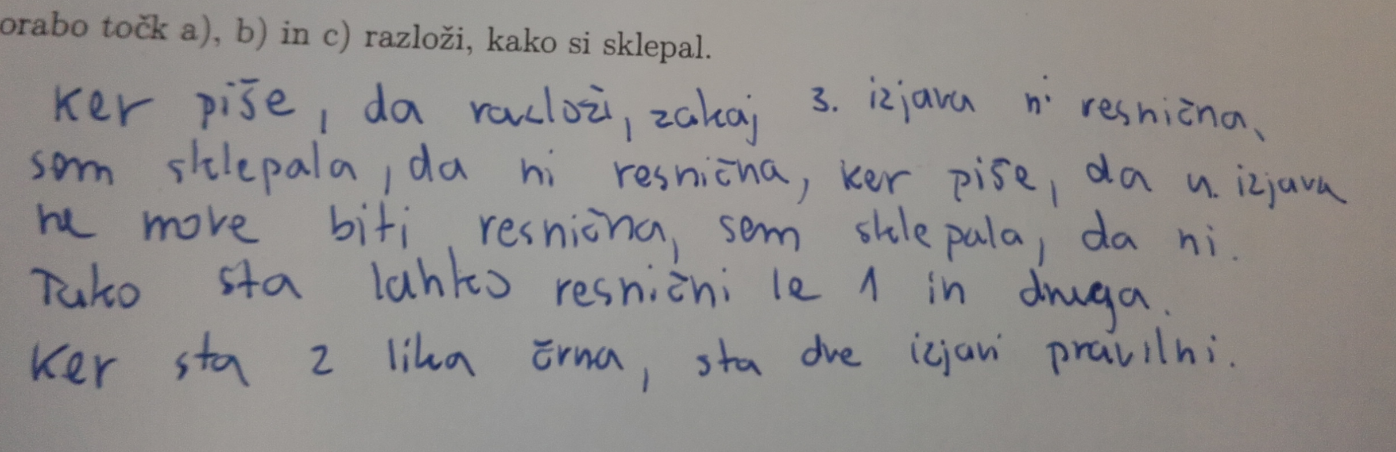 orabo točk a), b) in c) razloži, kako si sklepal.
Ker piše, da razloži, zakaj 3. izjava ni resnična,
sem sklepala, da ni resnična, ker piše, da 4. izjava
ne more biti resnična, sem sklepala, da ni.
Tako sta lahko resnični le 1 in druga.
Ker sta 2 lika črna, sta dve izjavi pravilni.